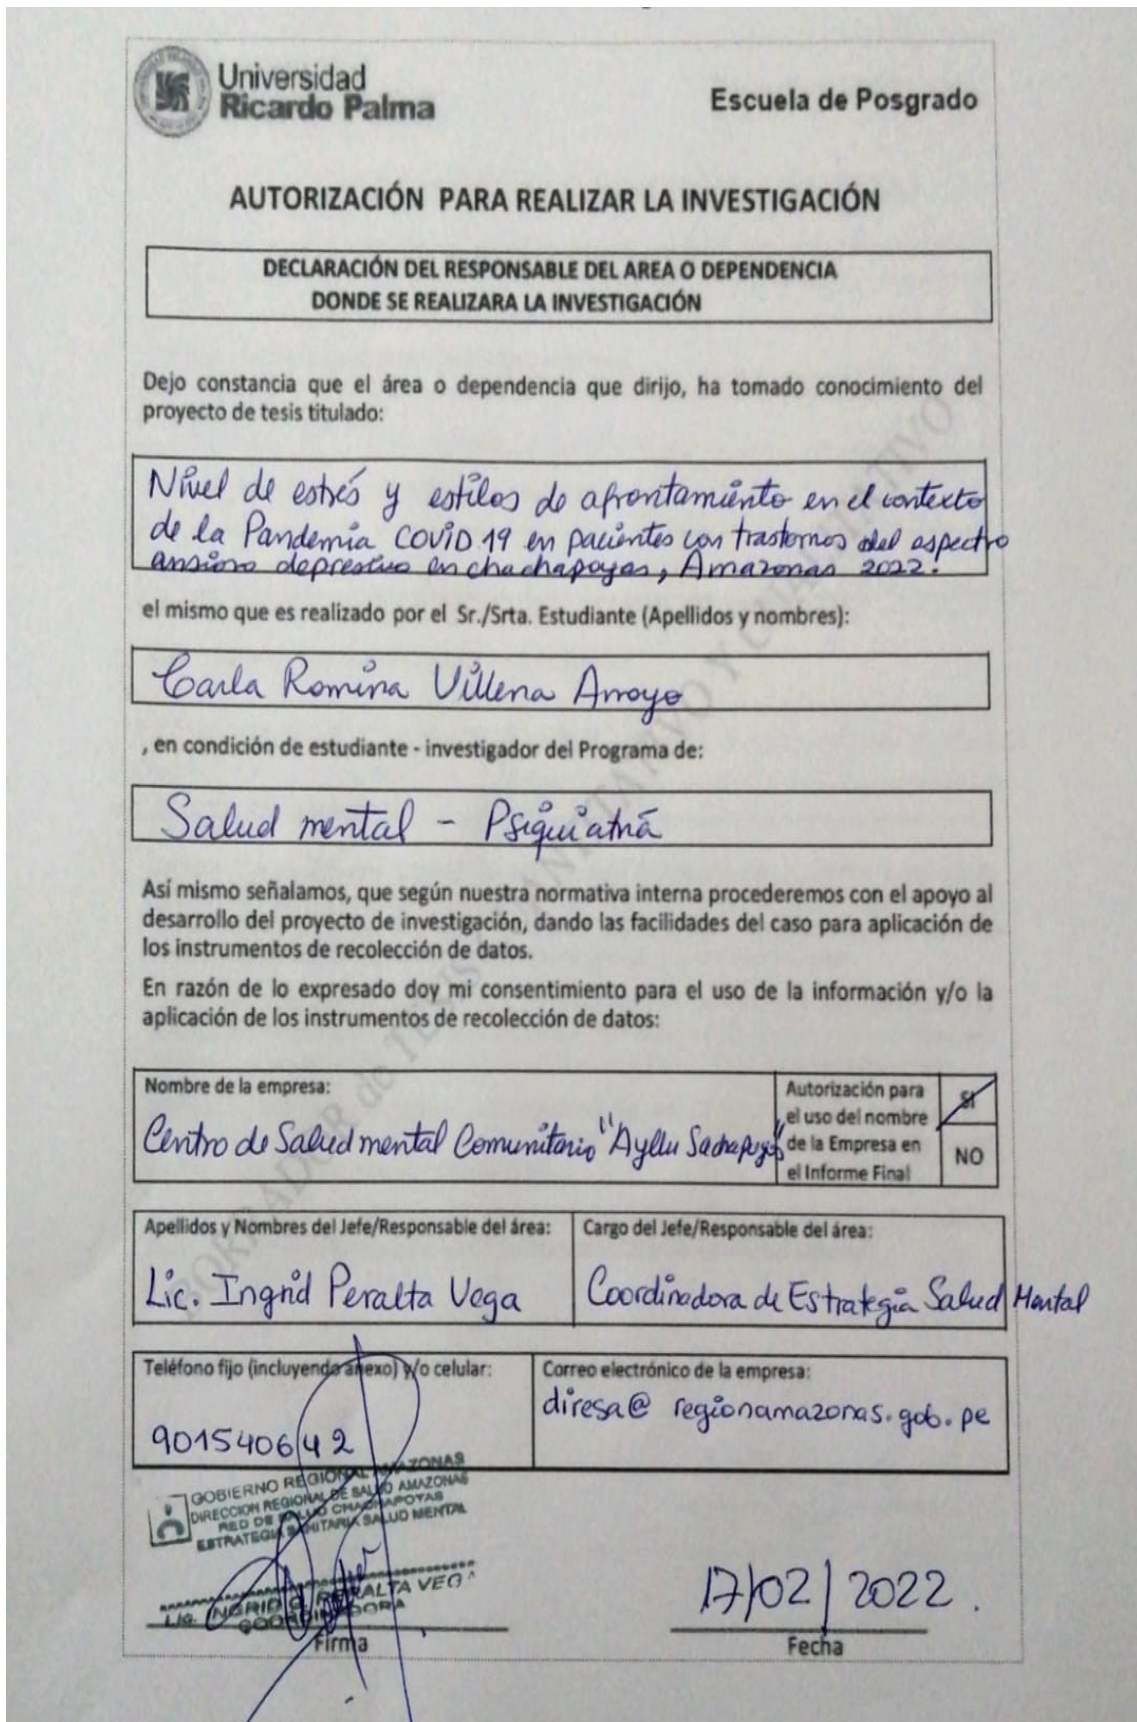 Universidad
Ricardo Palma
Escuela de Posgrado
AUTORIZACIÓN PARA REALIZAR LA INVESTIGACIÓN
DECLARACIÓN DEL RESPONSABLE DEL AREA O DEPENDENCIA
DONDE SE REALIZARA LA INVESTIGACIÓN
Dejo constancia que el área o dependencia que dirijo, ha tomado conocimiento del
proyecto de tesis titulado:
Nivel de estrés y estilos de afrontamiento en el contexto
de la Pandemia COVID 19 en pacientes con trastornos del espectro
ansioso depresivo en chachapoyas, Amazonas 2022.
el mismo que es realizado por el Sr./Srta. Estudiante (Apellidos y nombres):
Carla Romina Villena Arroyo
, en condición de estudiante - investigador del Programa de:
Salud mental - Psiquiatría
Así mismo señalamos, que según nuestra normativa interna procederemos con el apoyo al
desarrollo del proyecto de investigación, dando las facilidades del caso para aplicación de
los instrumentos de recolección de datos.
En razón de lo expresado doy mi consentimiento para el uso de la información y/o la
aplicación de los instrumentos de recolección de datos:
Nombre de la empresa:
Centro de Salud mental Comunitario "Ayllu Sachapuyos"
Autorización para
el uso del nombre
de la Empresa en
el Informe Final
SI
NO
Apellidos y Nombres del Jefe/Responsable del área:
Lic. Ingrid Peralta Vega
Cargo del Jefe/Responsable del área:
Coordinadora de Estrategia Salud Mental
Teléfono fijo (incluyendo anexo) y/o celular:
901540642
Correo electrónico de la empresa:
diresa@ regionamazonas.gob.pe
GOBIERNO REGIONAL AMAZONAS
DIRECCION REGIONAL DE SALUD AMAZONAS
RED DE SALUD CHACHAPOYAS
ESTRATEGIA SANITARIA SALUD MENTAL
LIC. INGRID G. PERALTA VEGA
COORDINADORA
Firma
17/02/2022.
Fecha